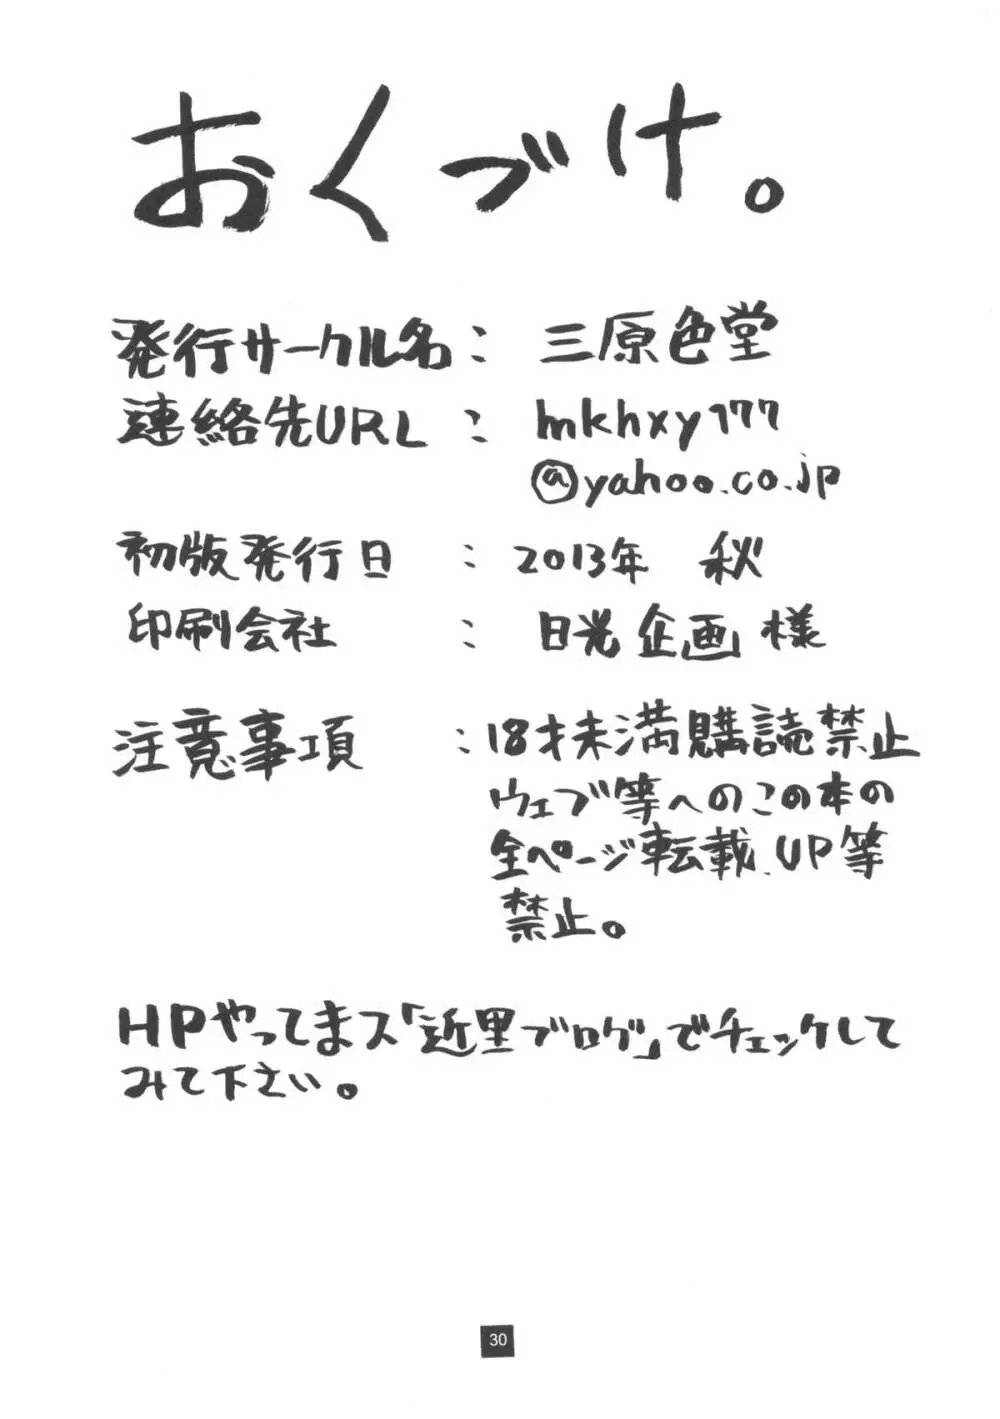 おくづけ。
発行サークル名：三原色堂
連絡先URL：mkhxy777
@yahoo.co.jp
初版発行日：2013年 秋
印刷会社：日光企画 様
注意事項：18才未満購読禁止
ウェブ等へのこの本の
全ページ転載、UP等
禁止。
HPやってまス「近里ブログ」でチェックして
みて下さい。
30